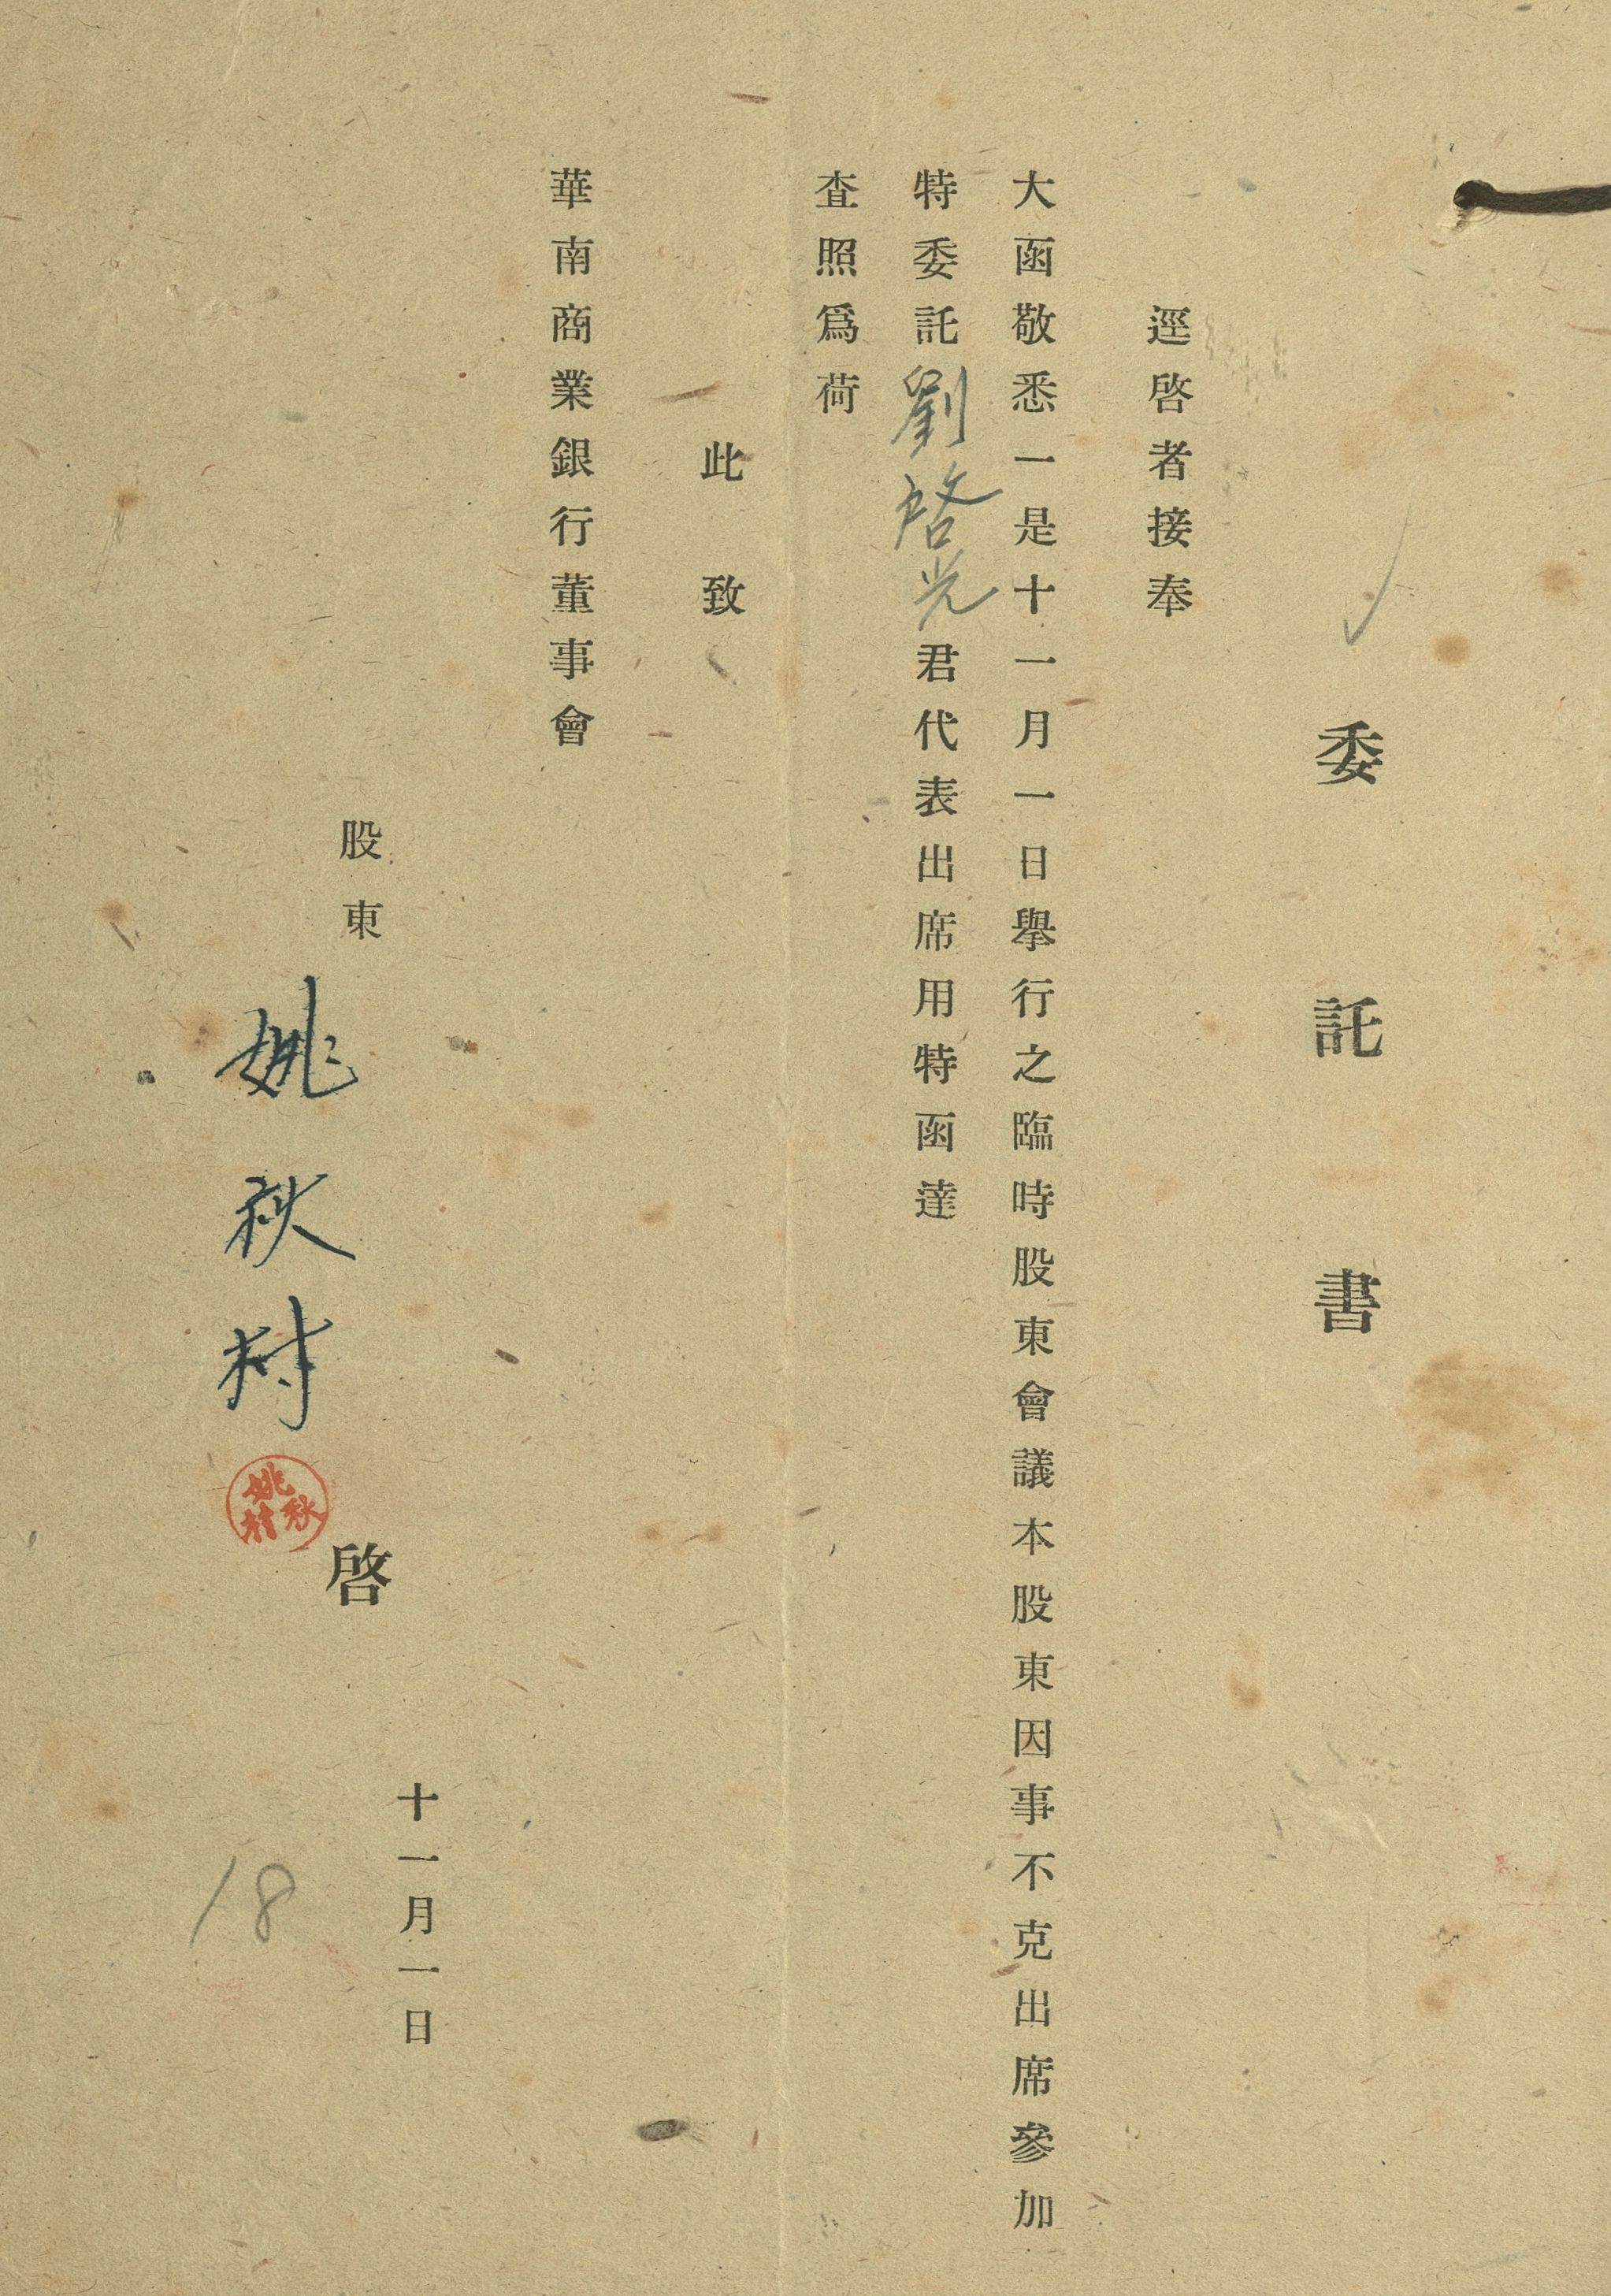 委託書
逕啓者接奉
大函敬悉一是十一月一日舉行之臨時股東會議本股東因事不克出席參加
特委託劉啓光君代表出席用特函達
查照爲荷
此致
華南商業銀行董事會
十一月一日
股東
啓
姚秋村
姚秋村
18